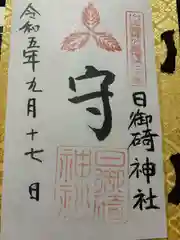 日御碕神社
守
令和五年九月十七日
日御碕神社